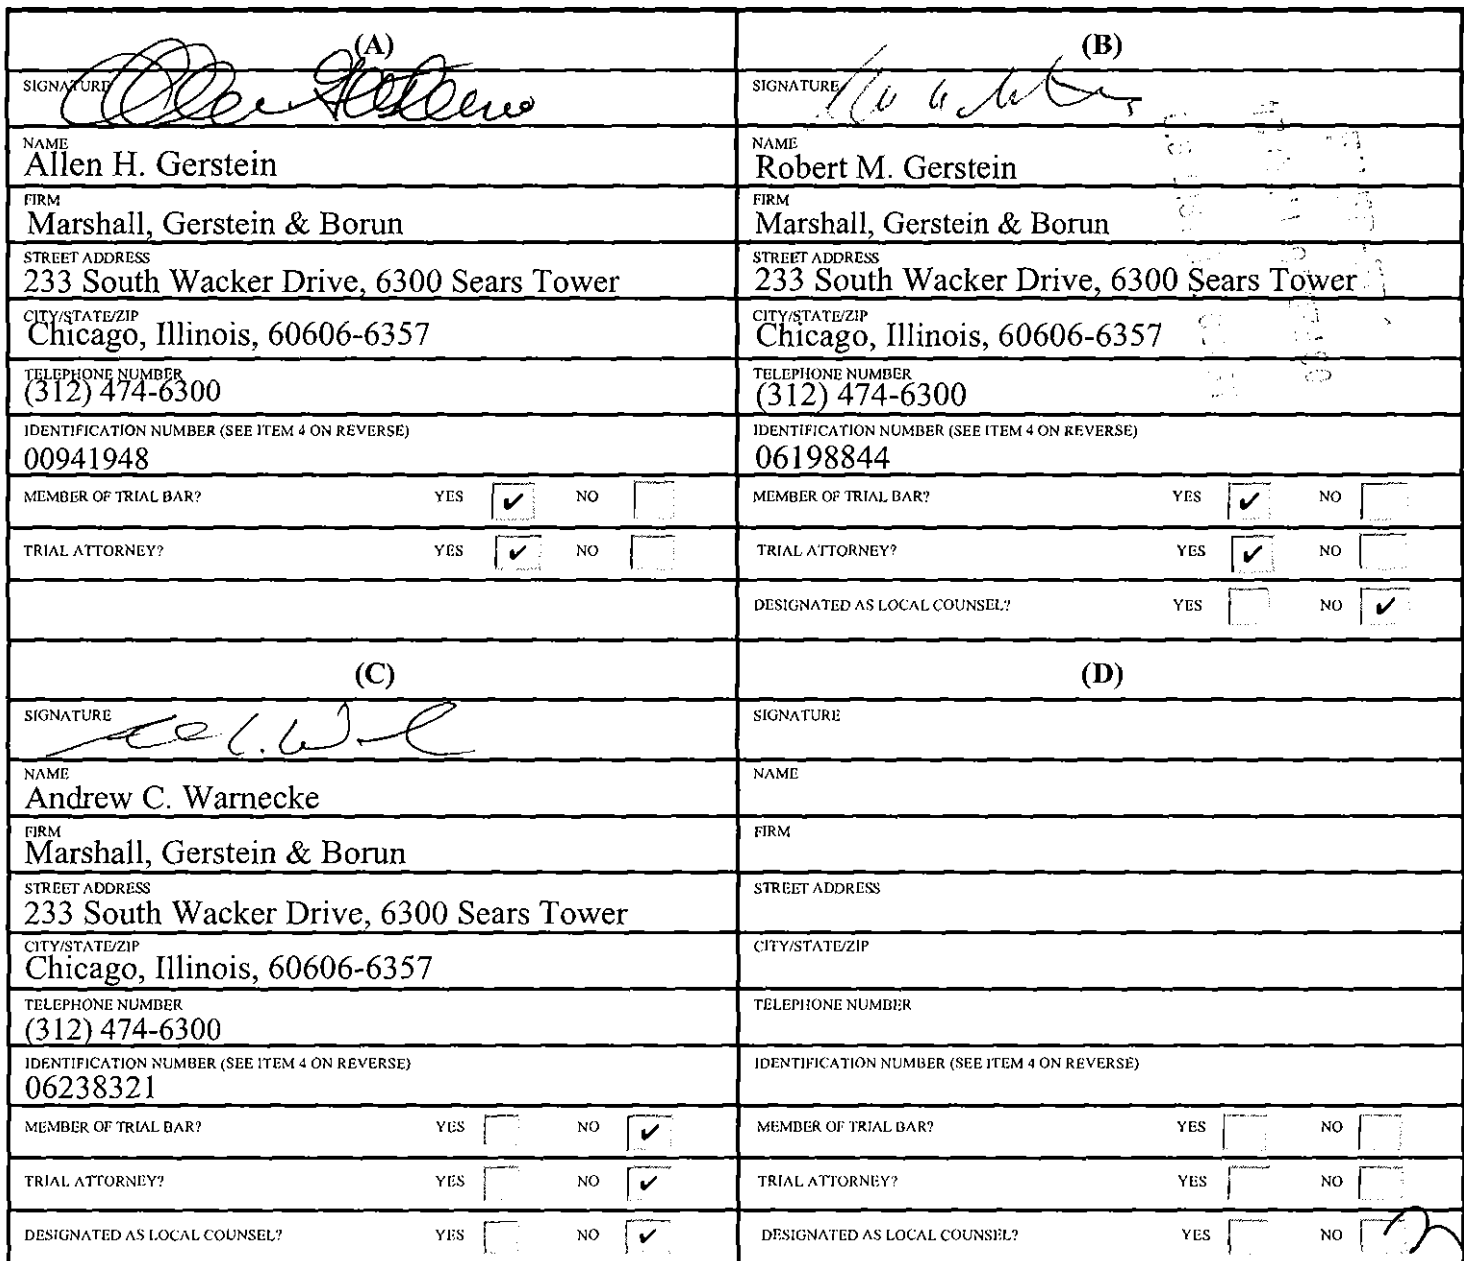 (A)
SIGNATURE
NAME
Allen H. Gerstein
FIRM
Marshall, Gerstein & Borun
STREET ADDRESS
233 South Wacker Drive, 6300 Sears Tower
CITY/STATE/ZIP
Chicago, Illinois, 60606-6357
TELEPHONE NUMBER
(312) 474-6300
IDENTIFICATION NUMBER (SEE ITEM 4 ON REVERSE)
00941948
MEMBER OF TRIAL BAR? YES ✔ NO
TRIAL ATTORNEY? YES ✔ NO
(B)
SIGNATURE
NAME
Robert M. Gerstein
FIRM
Marshall, Gerstein & Borun
STREET ADDRESS
233 South Wacker Drive, 6300 Sears Tower
CITY/STATE/ZIP
Chicago, Illinois, 60606-6357
TELEPHONE NUMBER
(312) 474-6300
IDENTIFICATION NUMBER (SEE ITEM 4 ON REVERSE)
06198844
MEMBER OF TRIAL BAR? YES ✔ NO
TRIAL ATTORNEY? YES ✔ NO
DESIGNATED AS LOCAL COUNSEL? YES NO ✔
(C)
SIGNATURE
NAME
Andrew C. Warnecke
FIRM
Marshall, Gerstein & Borun
STREET ADDRESS
233 South Wacker Drive, 6300 Sears Tower
CITY/STATE/ZIP
Chicago, Illinois, 60606-6357
TELEPHONE NUMBER
(312) 474-6300
IDENTIFICATION NUMBER (SEE ITEM 4 ON REVERSE)
06238321
MEMBER OF TRIAL BAR? YES NO ✔
TRIAL ATTORNEY? YES NO ✔
DESIGNATED AS LOCAL COUNSEL? YES NO ✔
(D)
SIGNATURE
NAME
FIRM
STREET ADDRESS
CITY/STATE/ZIP
TELEPHONE NUMBER
IDENTIFICATION NUMBER (SEE ITEM 4 ON REVERSE)
MEMBER OF TRIAL BAR? YES NO
TRIAL ATTORNEY? YES NO
DESIGNATED AS LOCAL COUNSEL? YES NO